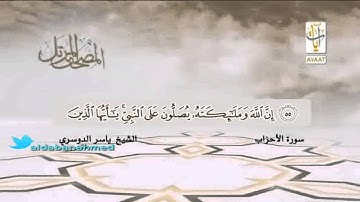 المصحف المرتل
آيات
AYAAT
٥٥ إِنَّ ٱللَّهَ وَمَلَـٰٓئِكَتَهُۥ يُصَلُّونَ عَلَى ٱلنَّبِىِّ ۚ يَـٰٓأَيُّهَا ٱلَّذِينَ
سورة الأحزاب
الشيخ ياسر الدوسري
@aldabanahmed